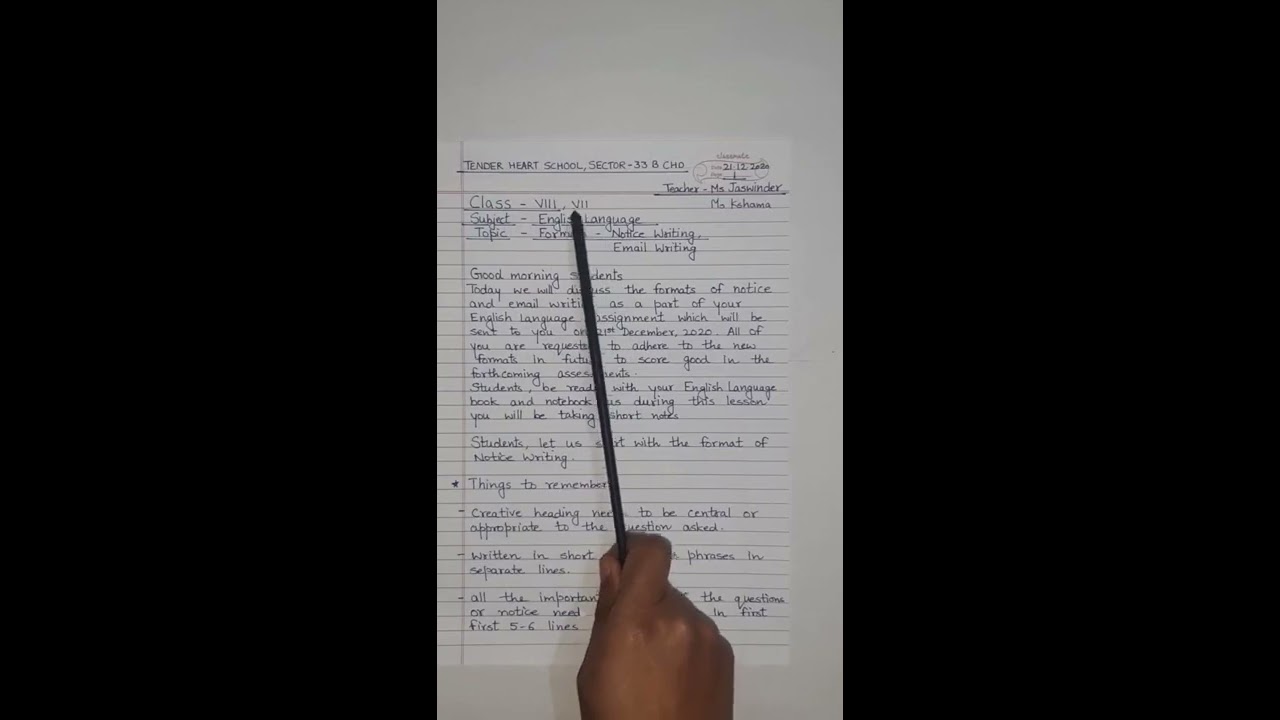 TENDER HEART SCHOOL, SECTOR-33 B CHD.
classmate
Date 21.12.2020
Page 1
Teacher - Ms Jaswinder
Class - VIII, VII Ms Kshama
Subject - English Language
Topic - - Notice Writing,
Email Writing
Good morning
Today we will the formats of notice
and email as a part of your
English Language which will be
sent to you 21st December, 2020. All of
you are to adhere to the new
formats in to score good in the
forthcoming
Students, be with your English Language
book and notebook during this lesson
you will be taking short notes
Students, let us with the format of
Notice Writing.
★ Things to remember
- Creative heading to be central or
appropriate to the question asked.
- Written in short phrases in
separate lines.
- all the the questions
or notice need in first
first 5-6 lines